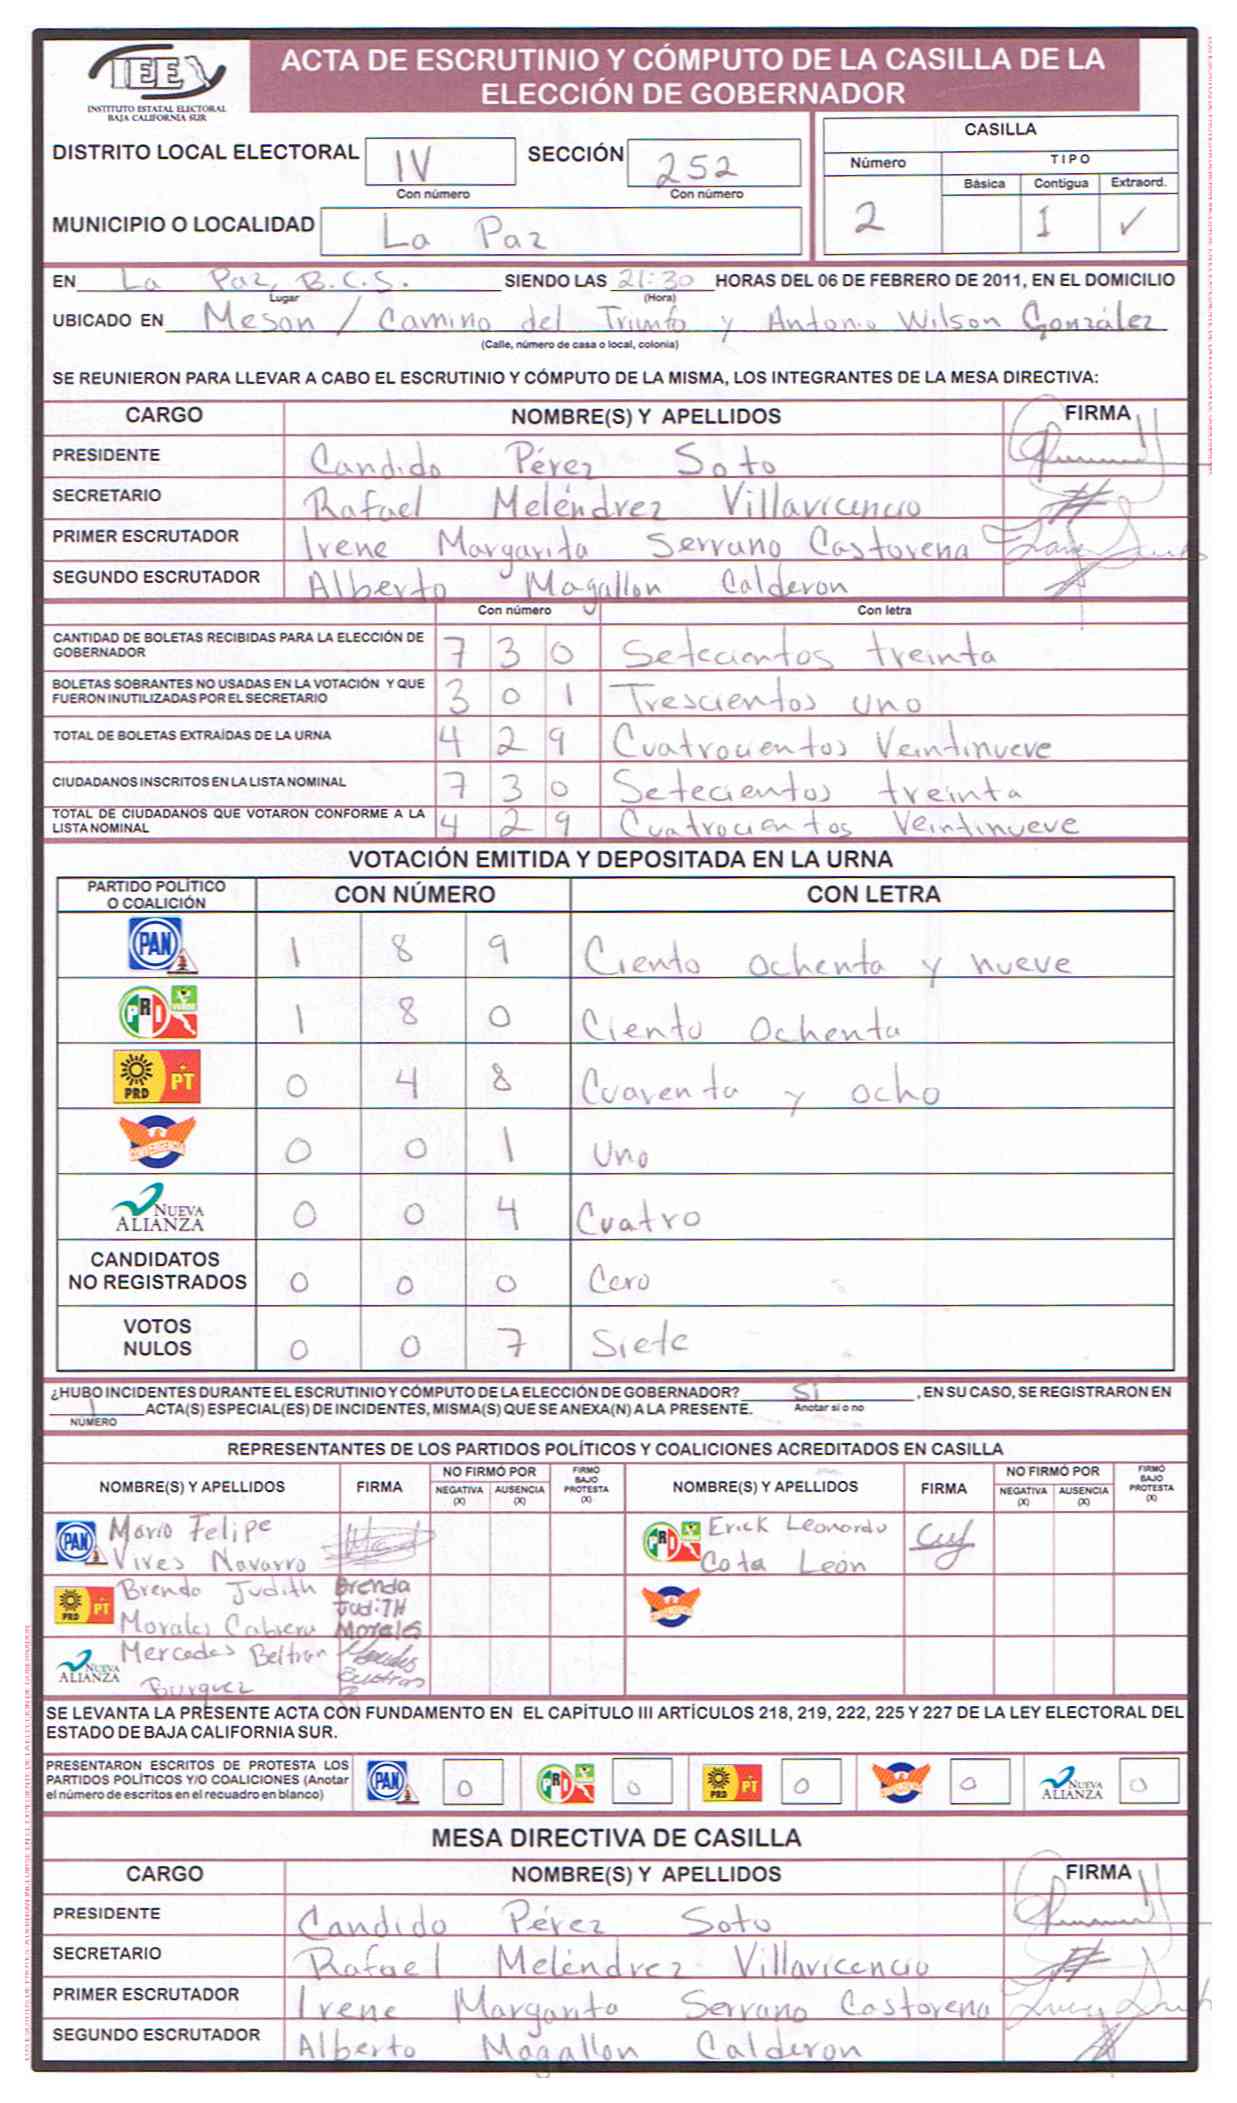 IEEX
INSTITUTO ESTATAL ELECTORAL
BAJA CALIFORNIA SUR
ACTA DE ESCRUTINIO Y CÓMPUTO DE LA CASILLA DE LA
ELECCIÓN DE GOBERNADOR
DISTRITO LOCAL ELECTORAL IV SECCIÓN 252
Con número Con número
MUNICIPIO O LOCALIDAD La Paz
CASILLA
Número TIPO
Básica Contigua Extraord.
2 1 ✓
EN La Paz, B.C.S. SIENDO LAS 21:30 HORAS DEL 06 DE FEBRERO DE 2011, EN EL DOMICILIO
Lugar (Hora)
UBICADO EN Meson / Camino del Triunfo y Antonio Wilson González
(Calle, número de casa o local, colonia)
SE REUNIERON PARA LLEVAR A CABO EL ESCRUTINIO Y CÓMPUTO DE LA MISMA, LOS INTEGRANTES DE LA MESA DIRECTIVA:
CARGO NOMBRE(S) Y APELLIDOS FIRMA
PRESIDENTE Candido Pérez Soto
SECRETARIO Rafael Meléndrez Villavicencio
PRIMER ESCRUTADOR Irene Margarita Serrano Castorena
SEGUNDO ESCRUTADOR Alberto Magallon Calderon
Con número Con letra
CANTIDAD DE BOLETAS RECIBIDAS PARA LA ELECCIÓN DE
GOBERNADOR 7 3 0 Setecientos treinta
BOLETAS SOBRANTES NO USADAS EN LA VOTACIÓN Y QUE
FUERON INUTILIZADAS POR EL SECRETARIO 3 0 1 Trescientos uno
TOTAL DE BOLETAS EXTRAÍDAS DE LA URNA 4 2 9 Cuatrocientos Veintinueve
CIUDADANOS INSCRITOS EN LA LISTA NOMINAL 7 3 0 Setecientos treinta
TOTAL DE CIUDADANOS QUE VOTARON CONFORME A LA
LISTA NOMINAL 4 2 9 Cuatrocientos Veintinueve
VOTACIÓN EMITIDA Y DEPOSITADA EN LA URNA
PARTIDO POLÍTICO
O COALICIÓN CON NÚMERO CON LETRA
PAN 1 8 9 Ciento ochenta y nueve
PRI VERDE 1 8 0 Ciento Ochenta
PRD PT 0 4 8 Cuarenta y ocho
CONVERGENCIA 0 0 1 Uno
NUEVA
ALIANZA 0 0 4 Cuatro
CANDIDATOS
NO REGISTRADOS 0 0 0 Cero
VOTOS
NULOS 0 0 7 Siete
¿HUBO INCIDENTES DURANTE EL ESCRUTINIO Y CÓMPUTO DE LA ELECCIÓN DE GOBERNADOR? Si , EN SU CASO, SE REGISTRARON EN
1 ACTA(S) ESPECIAL(ES) DE INCIDENTES, MISMA(S) QUE SE ANEXA(N) A LA PRESENTE. Anotar si o no
NÚMERO
REPRESENTANTES DE LOS PARTIDOS POLÍTICOS Y COALICIONES ACREDITADOS EN CASILLA
NOMBRE(S) Y APELLIDOS FIRMA NO FIRMÓ POR NEGATIVA (X) AUSENCIA (X) FIRMÓ BAJO PROTESTA (X) NOMBRE(S) Y APELLIDOS FIRMA NO FIRMÓ POR NEGATIVA (X) AUSENCIA (X) FIRMÓ BAJO PROTESTA (X)
PAN Mario Felipe PRI Erick Leonardo
Vives Navarro Cota León
PRD PT Brenda Judith Brenda
Judith
Morales Cabrera Morales
NUEVA ALIANZA Mercedes Beltran
Burquez
SE LEVANTA LA PRESENTE ACTA CON FUNDAMENTO EN EL CAPÍTULO III ARTÍCULOS 218, 219, 222, 225 Y 227 DE LA LEY ELECTORAL DEL
ESTADO DE BAJA CALIFORNIA SUR.
PRESENTARON ESCRITOS DE PROTESTA LOS
PARTIDOS POLÍTICOS Y/O COALICIONES (Anotar
el número de escritos en el recuadro en blanco)
PAN 0 PRI 0 PRD PT 0 CONVERGENCIA 0 NUEVA ALIANZA 0
MESA DIRECTIVA DE CASILLA
CARGO NOMBRE(S) Y APELLIDOS FIRMA
PRESIDENTE Candido Pérez Soto
SECRETARIO Rafael Meléndrez Villavicencio
PRIMER ESCRUTADOR Irene Margarita Serrano Castorena
SEGUNDO ESCRUTADOR Alberto Magallon Calderon